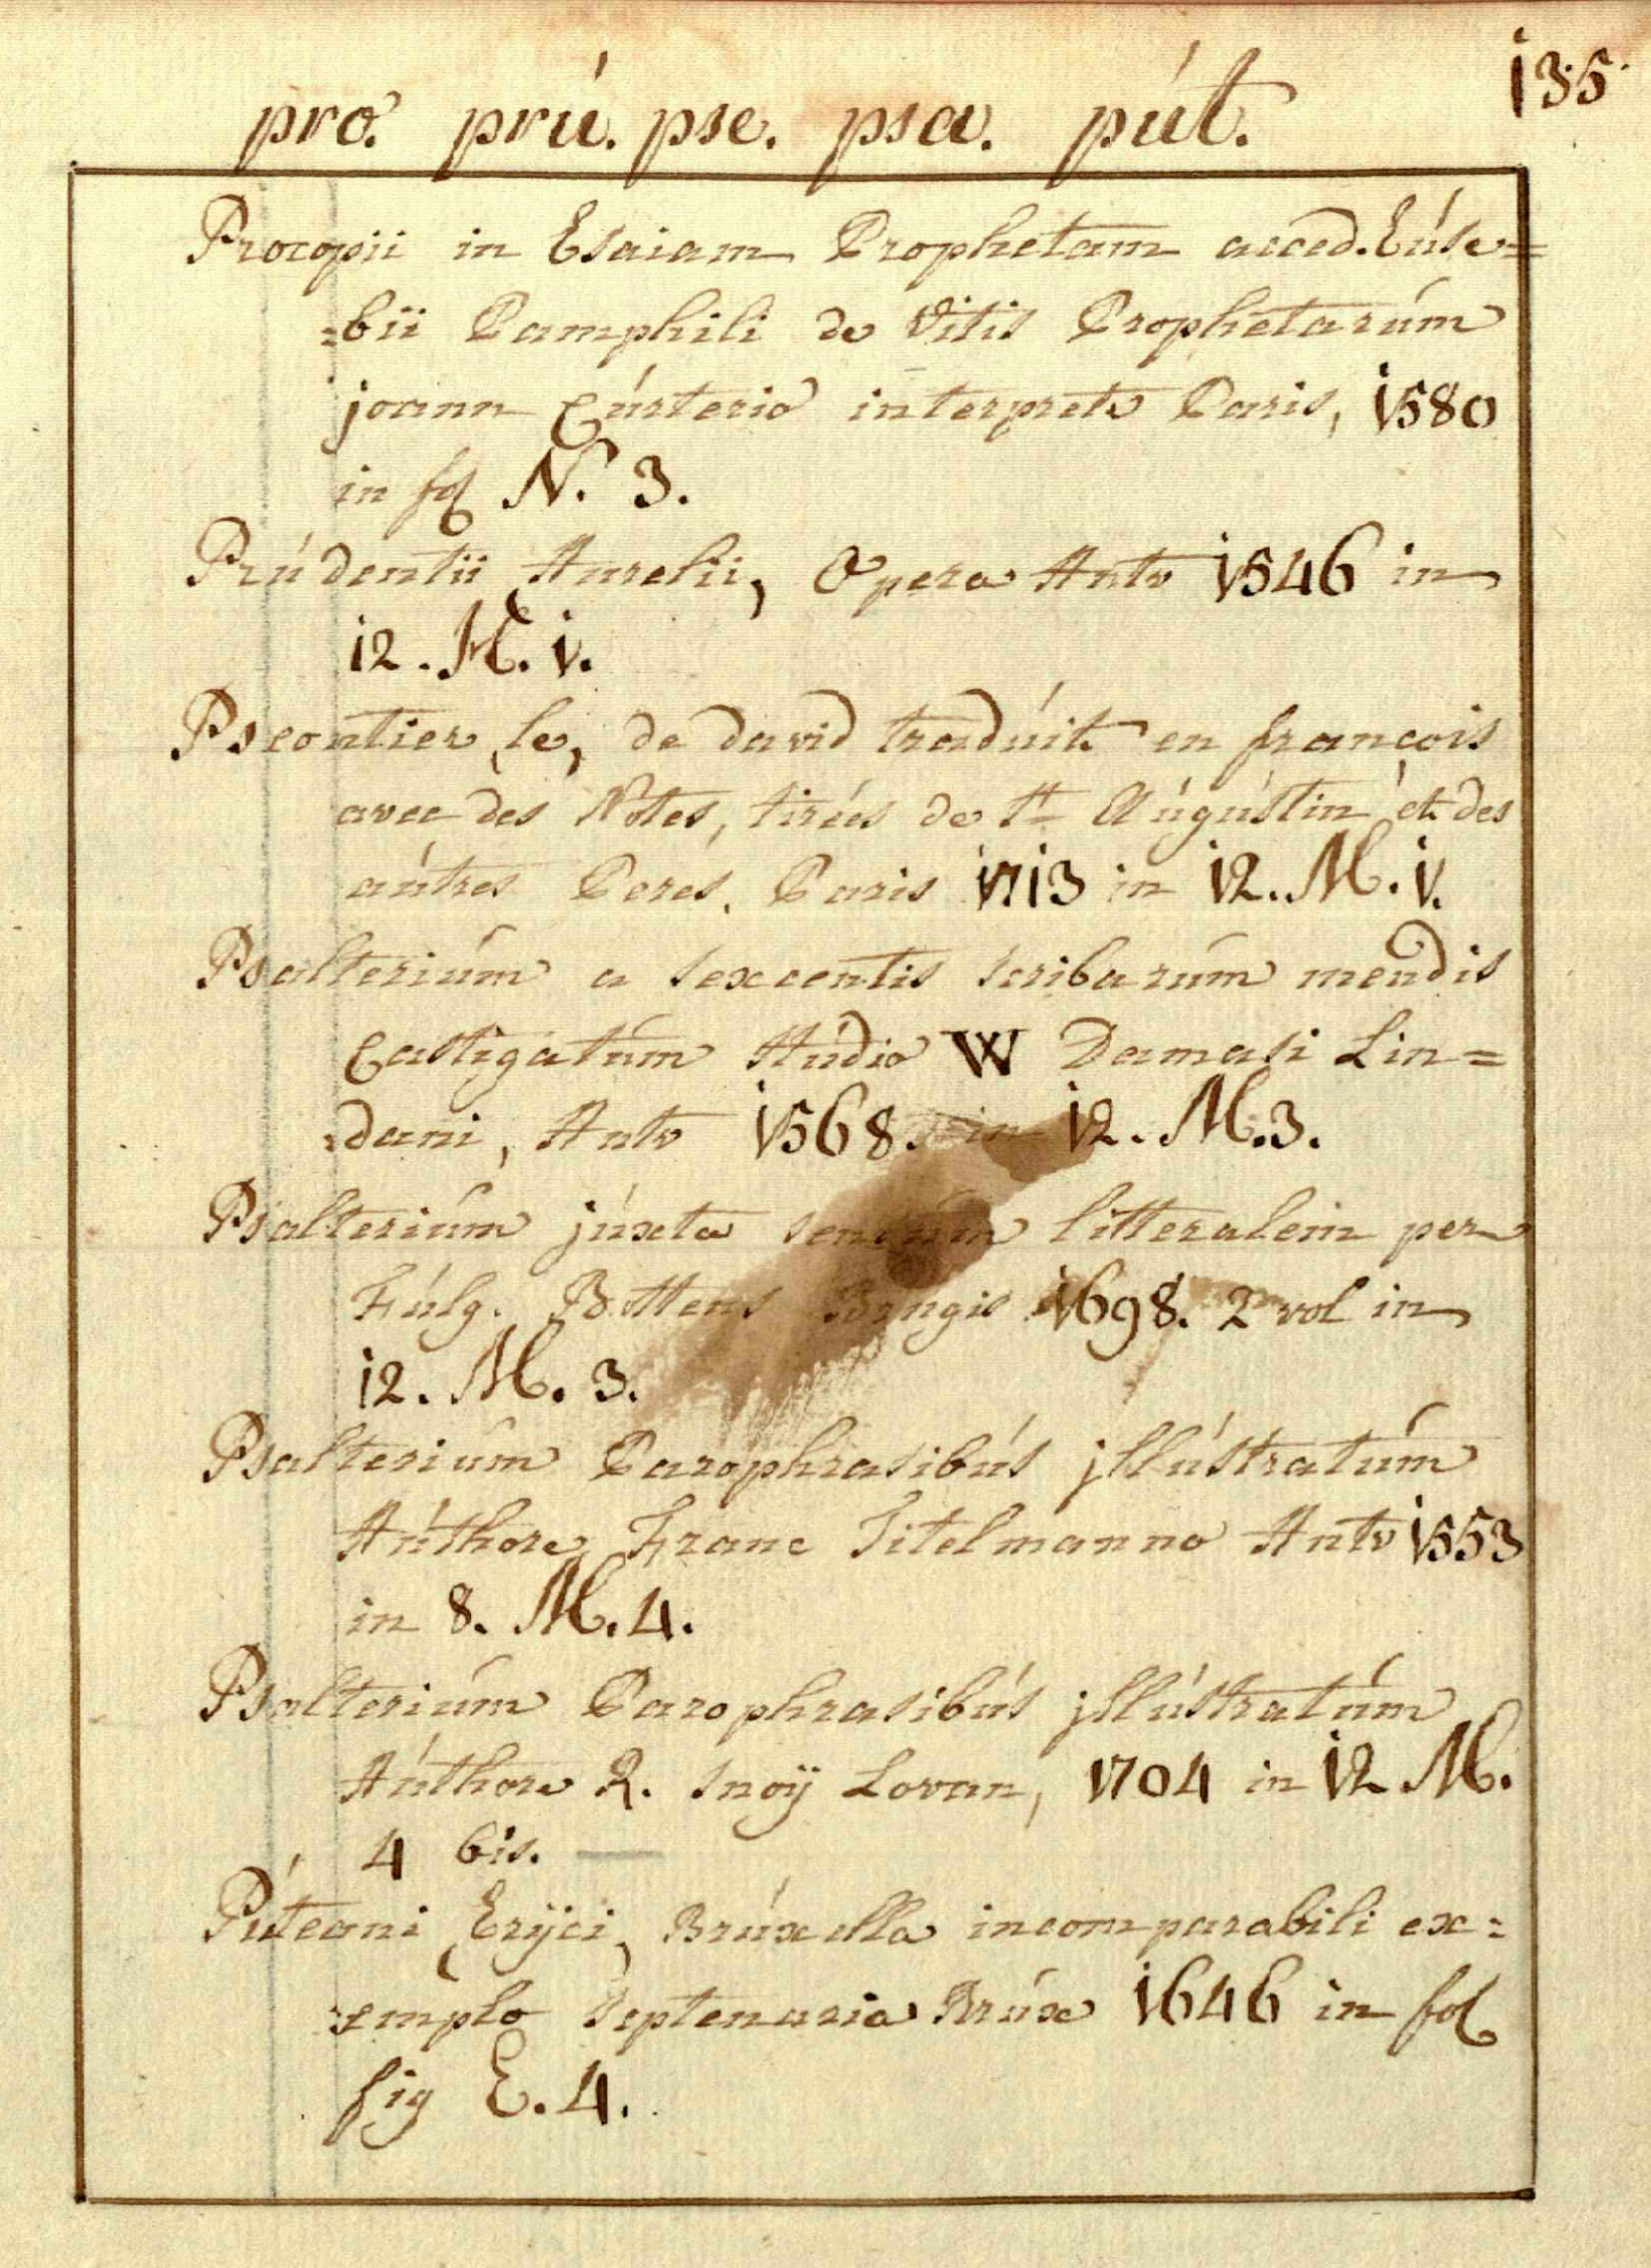 135.
pro. prú. pse. psa. pút.
Procopii in Esaiam Prophetam acced. Eúse=
=bii Pamphili de Vitis Prophetarúm
joann Cúrterio interprete Paris, 1580
in fol N. 3.
Prúdentii (Aurelii) Opera Antv 1546 in
12. H. 1.
Pseontier (le) de david tradúit en francois
avec des Notes, tirées de st Aúgústin et des
aútres Peres, Paris 1713 in 12. M. 1.
Psalteriúm a sexcentis scribarúm mendis
Castigatúm stúdio W Damasi Lin=
=dani, Antv 1568. in 12. M. 3.
Psalteriúm júxta sensúm litteralem per
Fúlg. Bottens Brugis 1698. 2 vol in
12. M. 3.
Psalteriúm Parophrasibús jllústratúm
Aúthore Franc Titelmanno Antv 1553
in 8. M. 4.
Psalteriúm Parophrasibús jllústratúm
Aúthore R. Snoÿ Lovan, 1704 in 12 M.
4 bis.
Púteani (Erÿci) Brúxella incomparabili ex=
=emplo Septenaria Brúx 1646 in fol
fig E. 4.